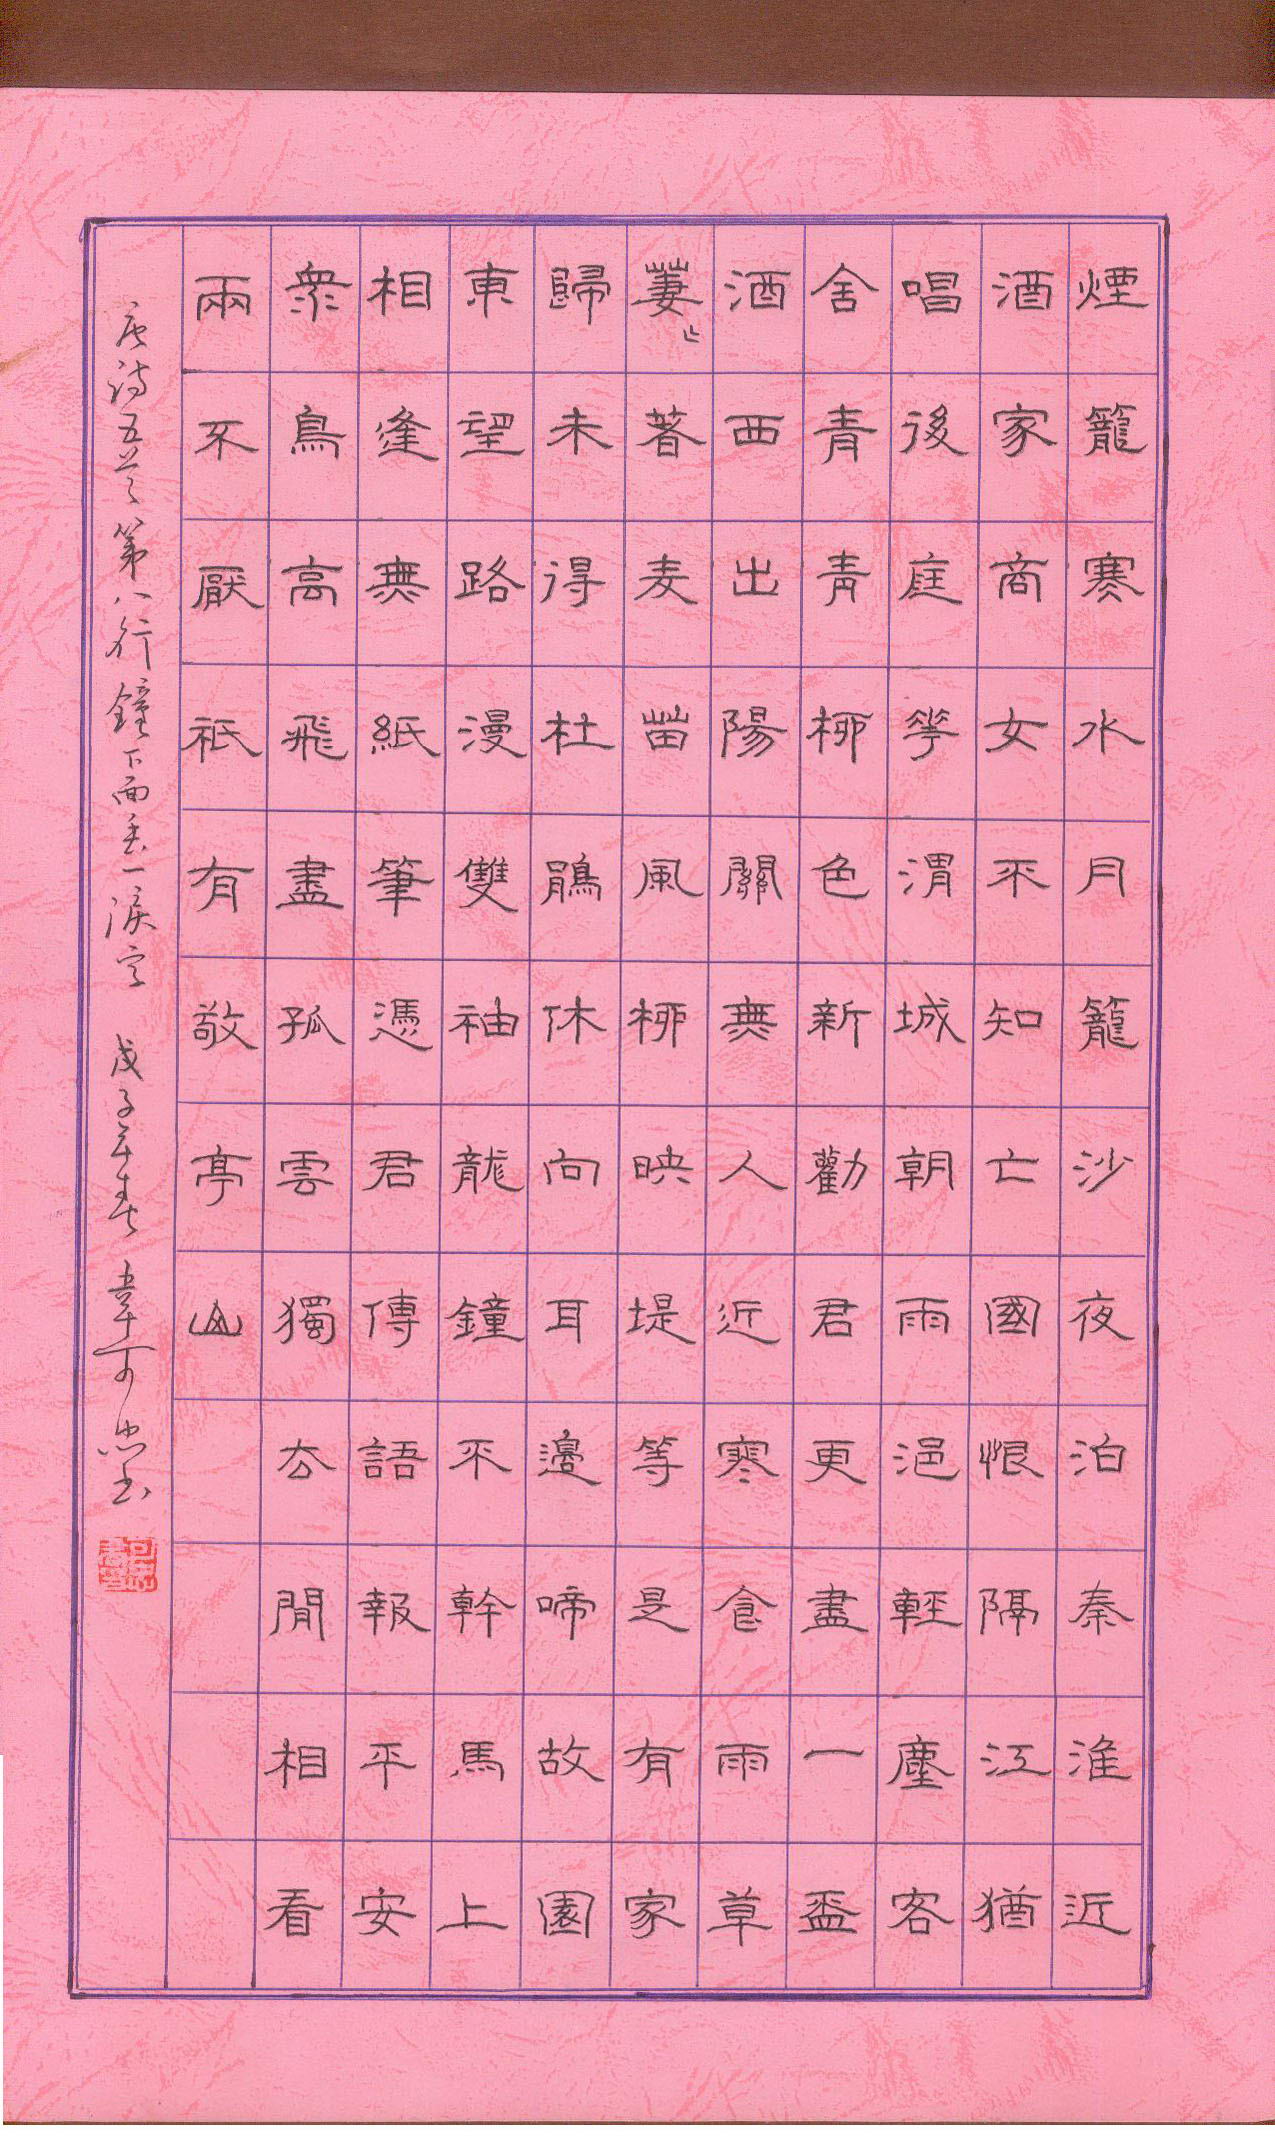 煙籠寒水月籠沙夜泊秦淮近
酒家商女不知亡國恨隔江猶
唱後庭花渭城朝雨浥輕塵客
舍青青柳色新勸君更盡一盃
酒西出陽關無人近寒食雨草
萋〻著麦苗風柳映堤等是有家
歸未得杜鵑休向耳邊啼故園
東望路漫漫雙袖龍鐘不幹馬上
相逢無紙筆憑君傳語報平安
衆鳥高飛盡孤雲獨去閒相看
兩不厭祇有敬亭山
唐詩五首第八行鐘下面丢一淚字 戊子年春 韋可忠书